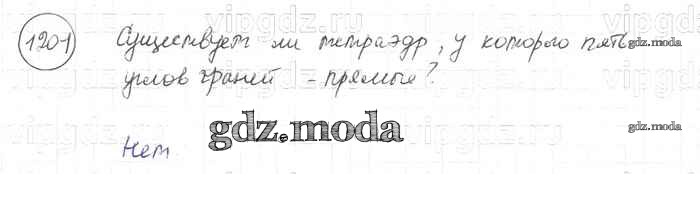 1201 Существует ли тетраэдр, у которого пять
углов граней - прямые?
Нет
gdz.moda
gdz.moda
gdz.moda
vipgdz.ru
vipgdz.ru
vipgdz.ru